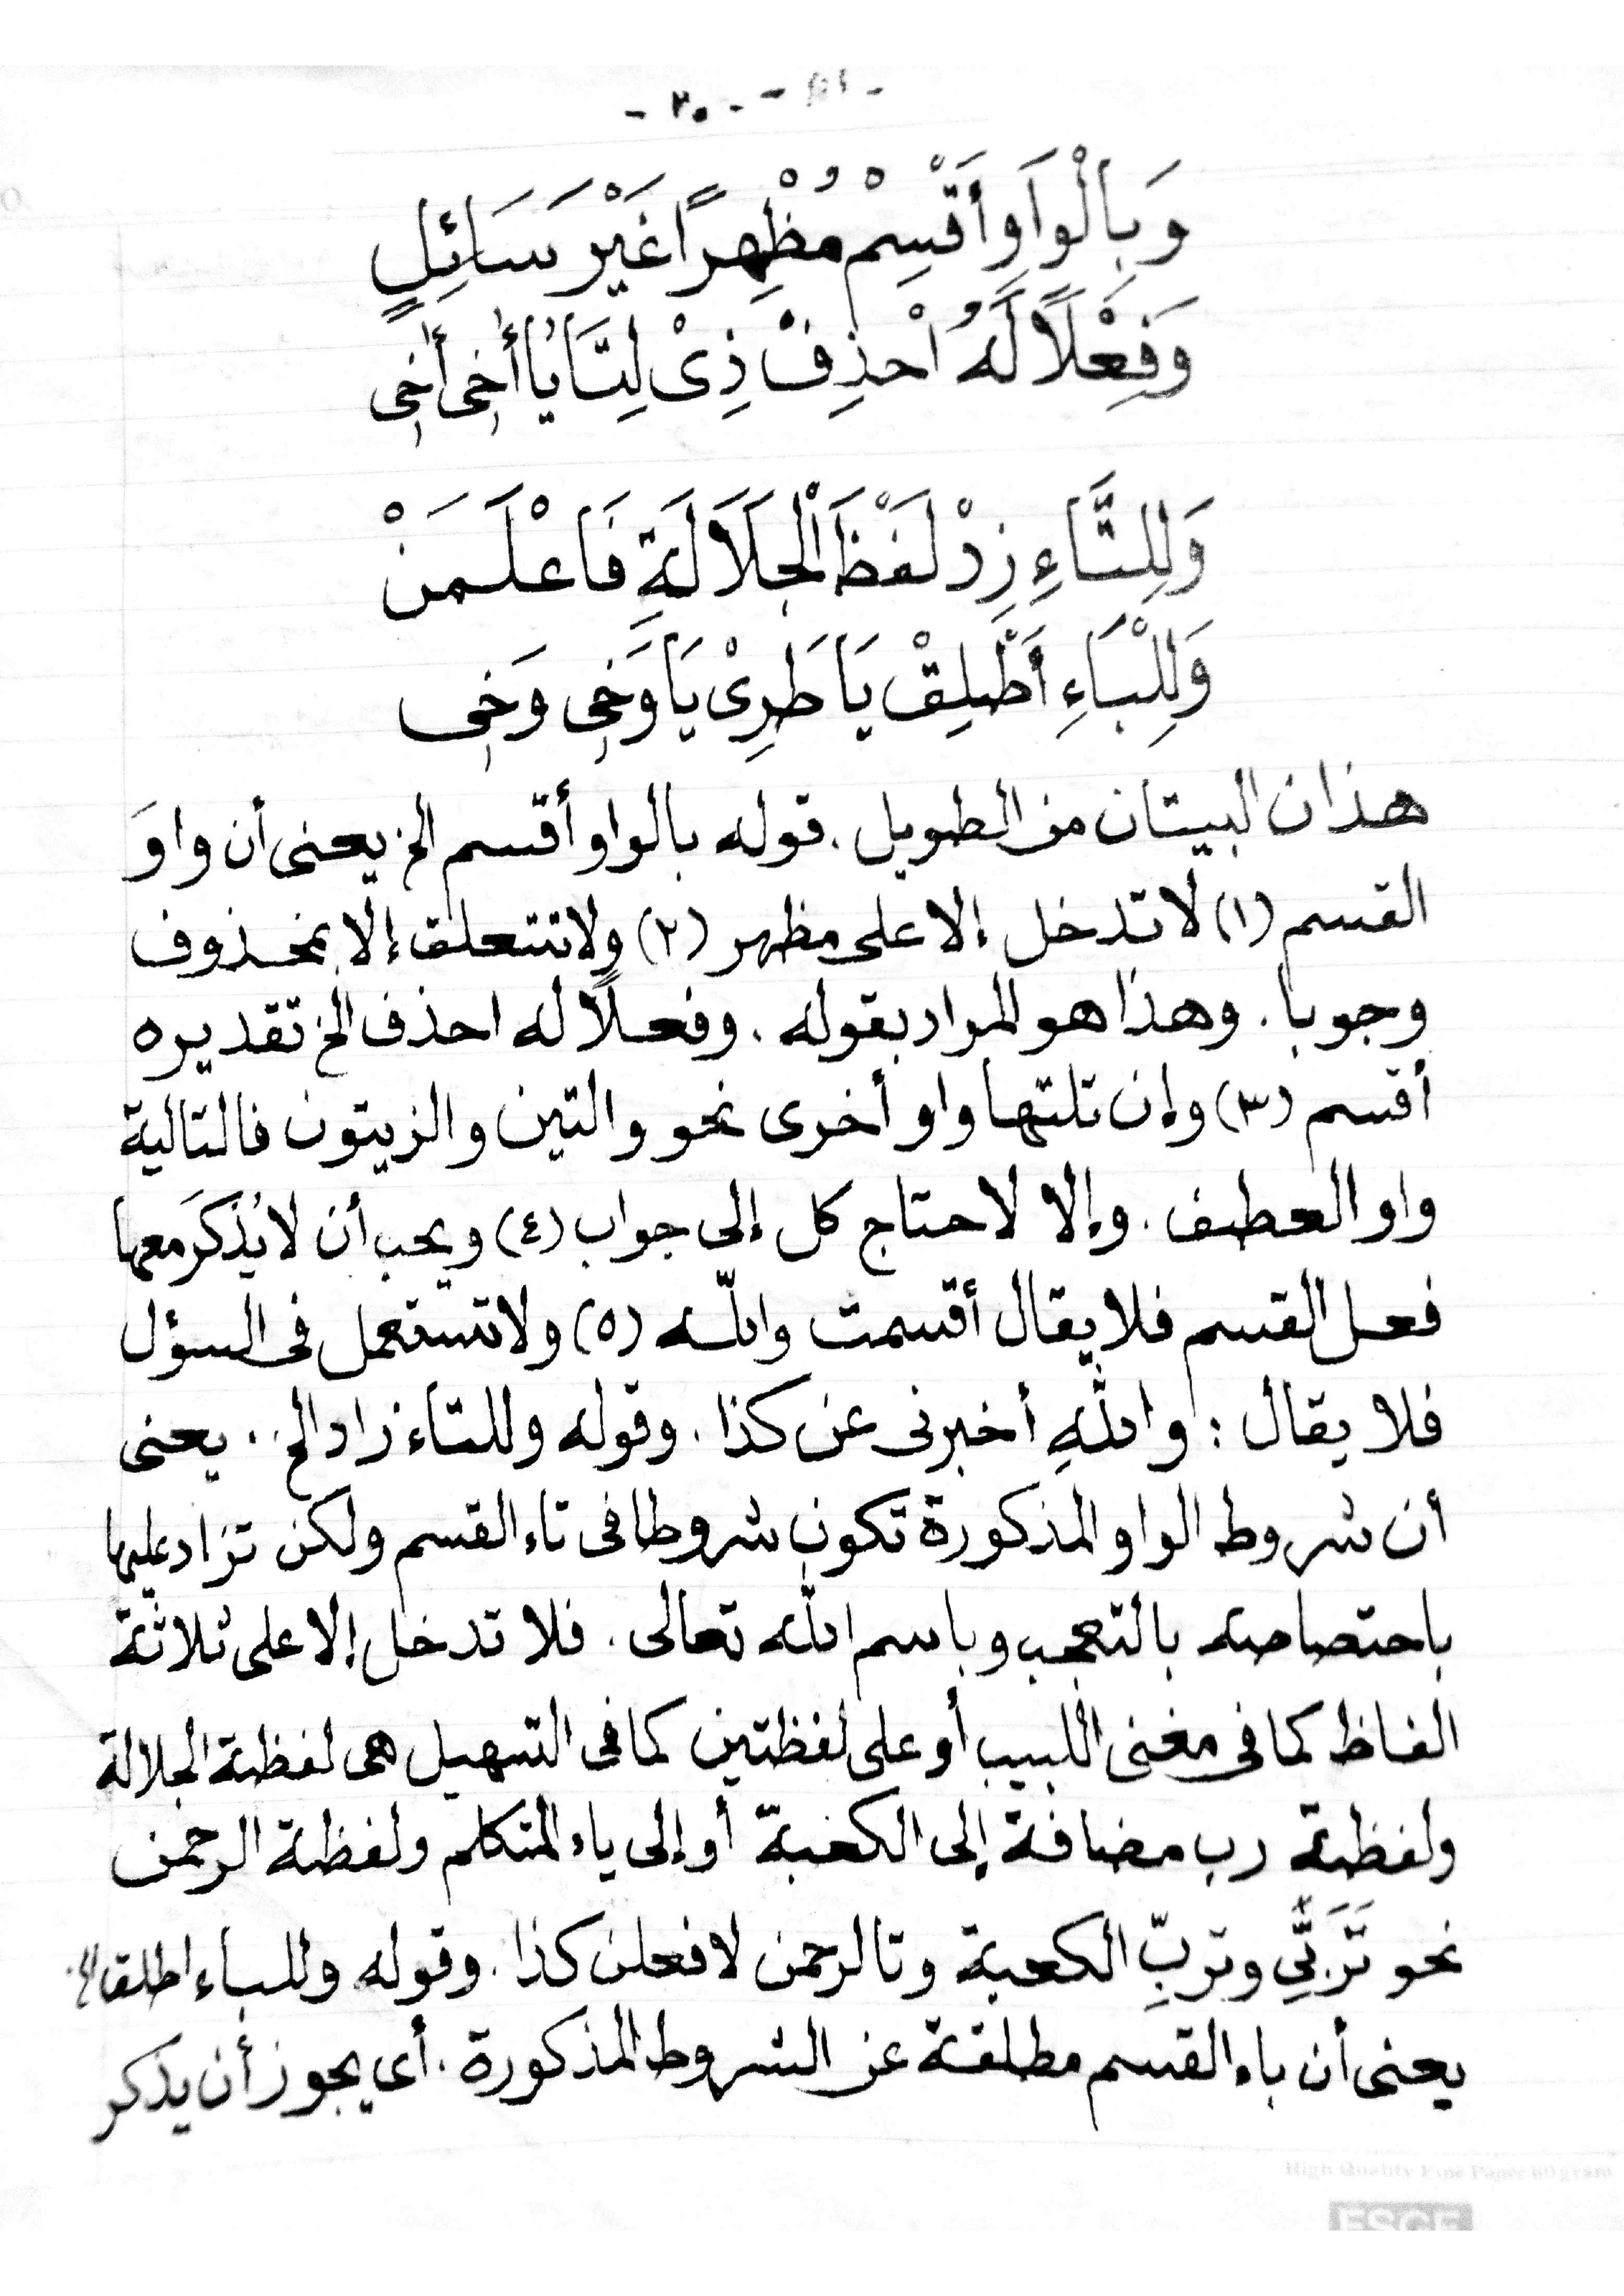 - ٢٠ -
وَبِالْوَاوِ أَقْسِمْ مُظْهِرًا غَيْرَ سَائِلٍ
وَفِعْلًا لَهُ احْذِفْ ذِىْ لِتَا يَا أُخَى أُخَى
وَلِلتَّاءِ زِدْ لَفْظَ الْجَلَالَةِ فَاعْلَمَنْ
وَلِلْبَاءِ أَطْلِقْ يَا طَرِىْ يَا وَخِى وَخِى
هذان البيتان من الطويل . قوله بالواو أقسم الخ يعنى أن واوَ
القسم (١) لا تدخل إلا على مظهر (٢) ولا تتعلق إلا بمحذوف
وجوبا . وهذا هو المراد بقوله . وفعلًا له احذف الخ تقديره
أقسم (٣) وإن تلتها واو أخرى نحو والتين والزيتون فالتالية
واو العطف . وإلا لاحتاج كل إلى جواب (٤) ويجب أن لا يُذْكَرَ معها
فعل القسم فلا يقال أقسمت والله (٥) ولا تستعمل فى السؤل
فلا يقال : واللهِ أخبرنى عن كذا . وقوله وللتاء زاد الخ .. يعنى
أن شروط الواو المذكورة تكون شروطا فى تاء القسم ولكن تزاد عليها
باحتصاصه بالتعجب وباسم الله تعالى . فلا تدخل إلا على ثلاثة
الفاظ كما فى مغنى اللبيب أو على لفظتين كما فى التسهيل هى لفظة الجلالة
ولفظة رب مضافة إلى الكعبة أو إلى ياء المتكلم ولفظة الرحمن
نحو تَرَبِّي وتربِّ الكعبة وتالرحمن لافعلن كذا . وقوله وللباء اطلق الخ.
يعنى أن باء القسم مطلقة عن الشروط المذكورة . أى يجوز أن يذكر
High Quality Fine Paper 60 gram